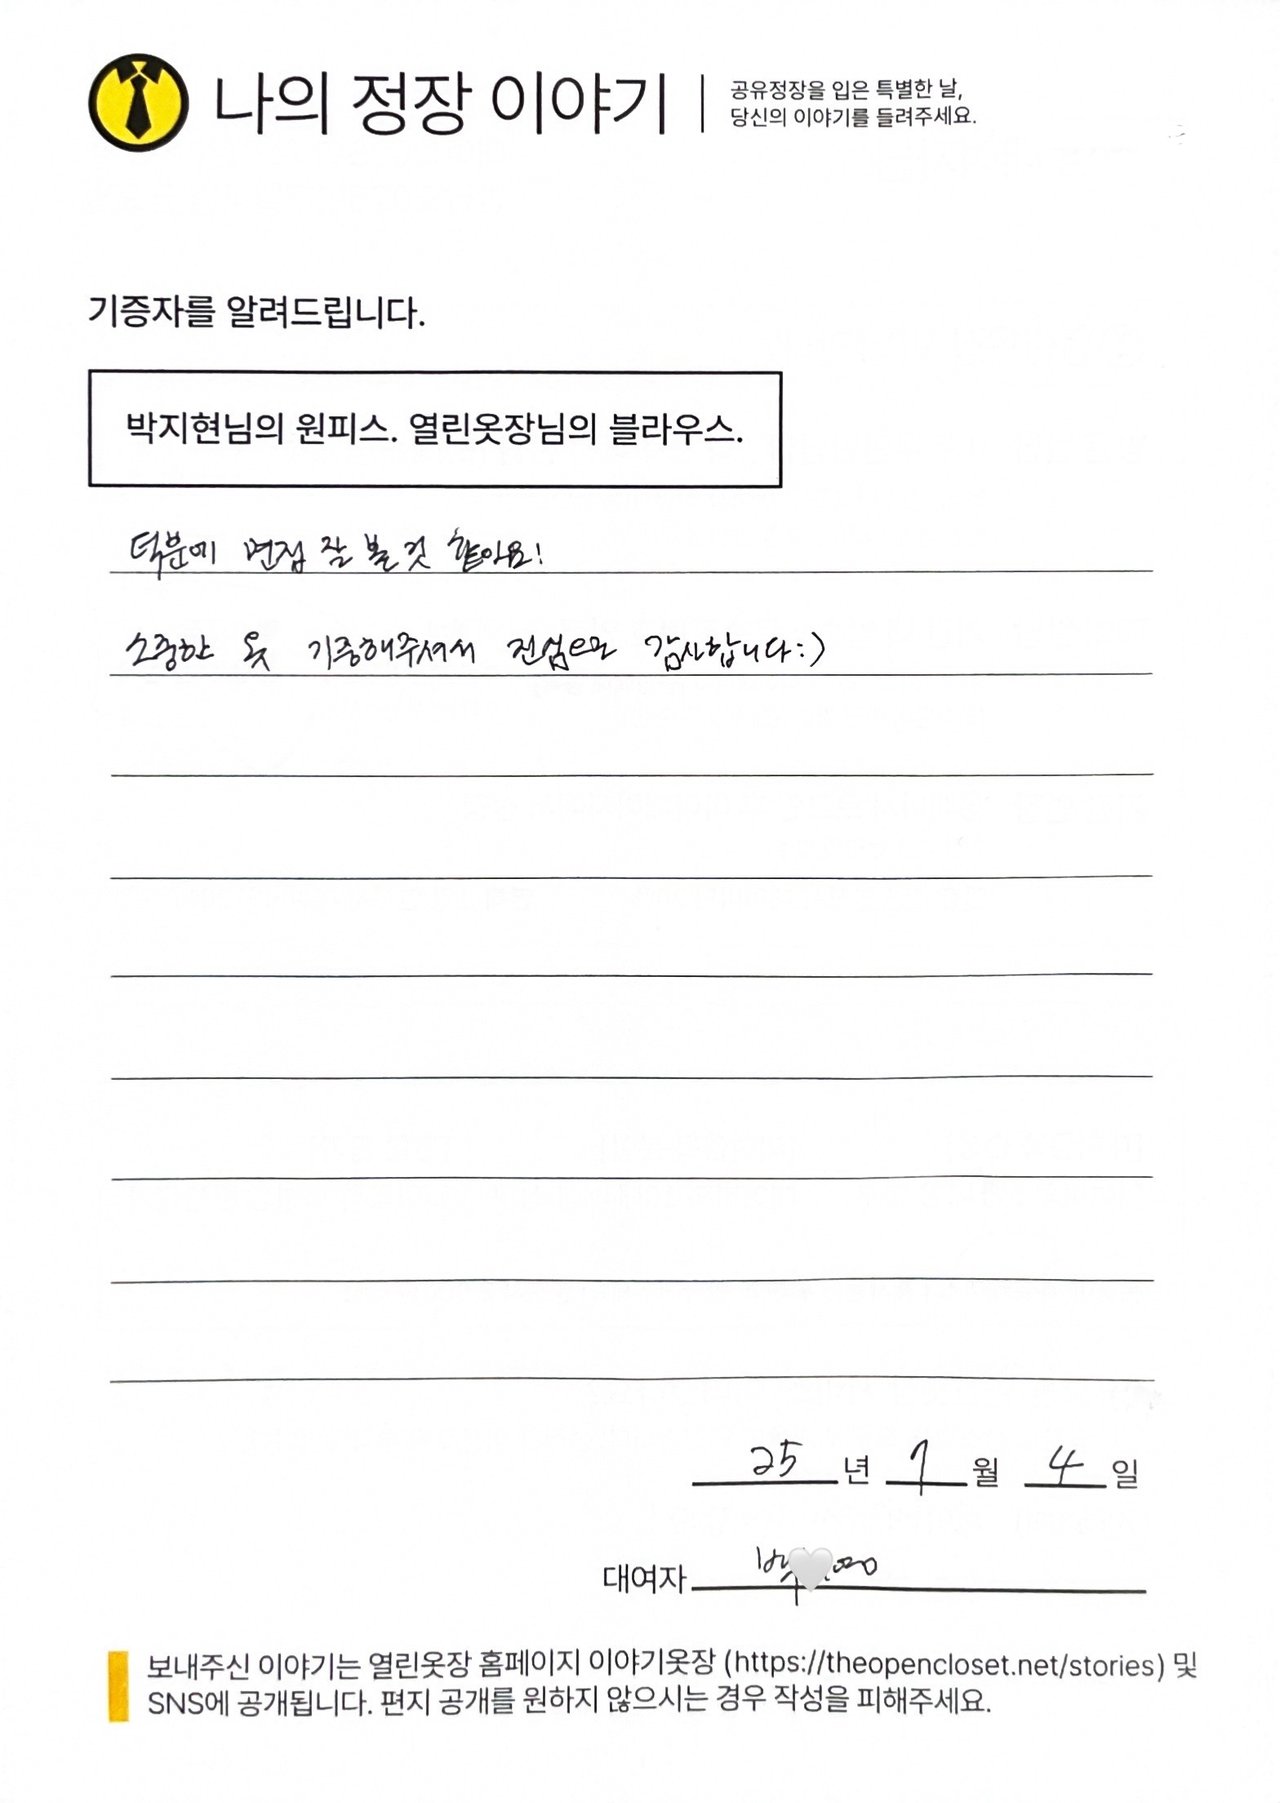 나의 정장 이야기
공유정장을 입은 특별한 날,
당신의 이야기를 들려주세요.
기증자를 알려드립니다.
박지현님의 원피스. 열린옷장님의 블라우스.
덕분에 면접 잘 볼 것 같아요!
소중한 옷 기증해주셔서 진심으로 감사합니다:)
25 년 7 월 4 일
대여자
보내주신 이야기는 열린옷장 홈페이지 이야기옷장 (https://theopencloset.net/stories) 및
SNS에 공개됩니다. 편지 공개를 원하지 않으시는 경우 작성을 피해주세요.